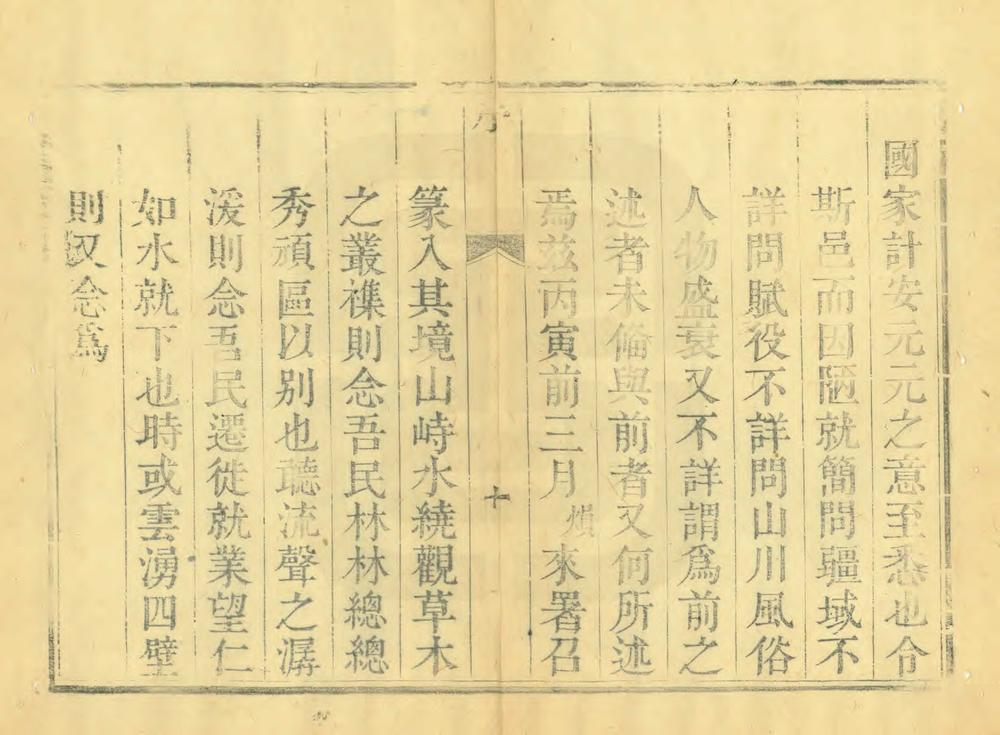 國家計安元元之意至悉也令
斯邑而因陋就簡問疆域不
詳問賦役不詳問山川風俗
人物盛衰又不詳謂爲前之
述者未偹與前者又何所述
焉兹丙寅前三月煩來署召
序
十
篆入其境山峙水繞觀草木
之叢襍則念吾民林林總總
秀頑區以别也聽流聲之潺
湲則念吾民遷徙就業望仁
如水就下也時或雲湧四壁
則又念爲